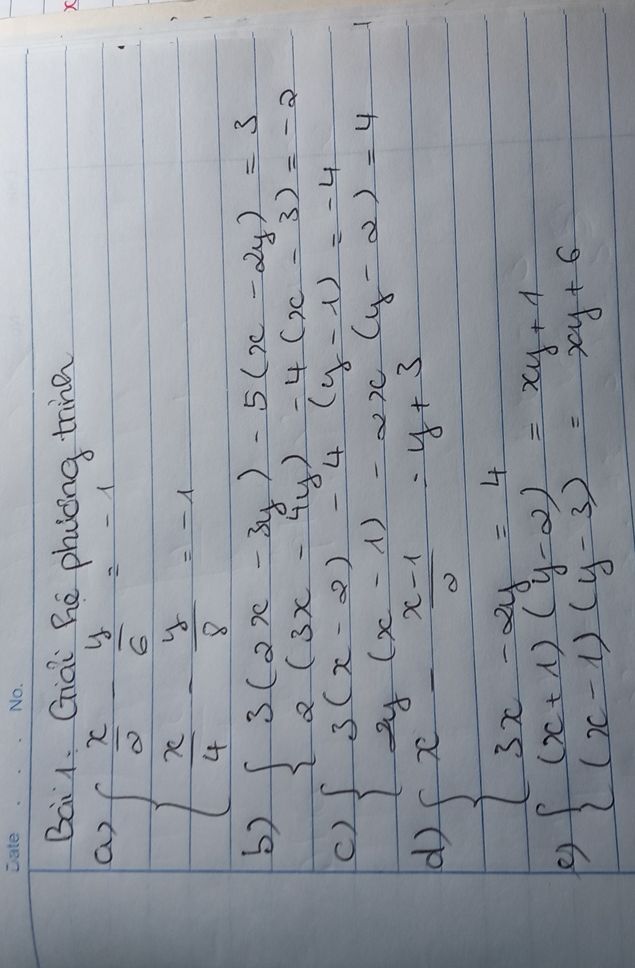 Date . . . No.
Bài 1. Giải hệ phương trình
a) { x/2 - y/6 = -1
x/4 - y/8 = -1
b) { 3(2x - 3y) - 5(x - 2y) = 3
2(3x - 4y) - 4(x - 3) = -2
c) { 3(x - 2) - 4(y - 1) = -4
2y(x - 1) - 2x(y - 2) = 4
d) { x - x-1/2 = y + 3
3x - 2y = 4
e) { (x + 1)(y - 2) = xy + 1
(x - 1)(y - 3) = xy + 6